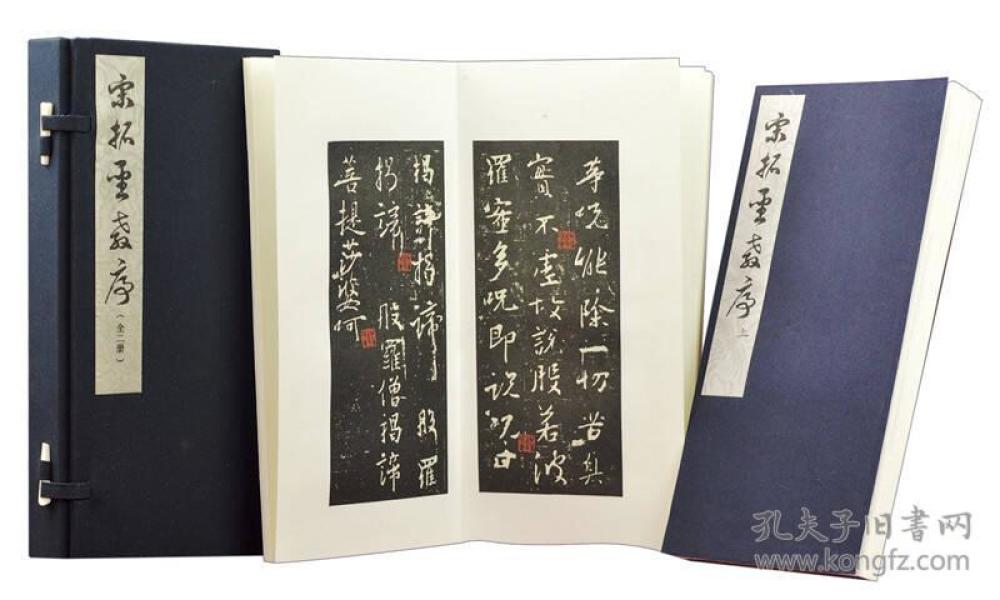 宋拓聖教序
（全二册）
等呪能除一切苦真
實不虛故說般若波
羅蜜多呪即說呪曰
揭諦揭諦 般羅
揭諦 般羅僧揭諦
菩提莎婆呵
宋拓聖教序
上
孔夫子旧書网
www.kongfz.com